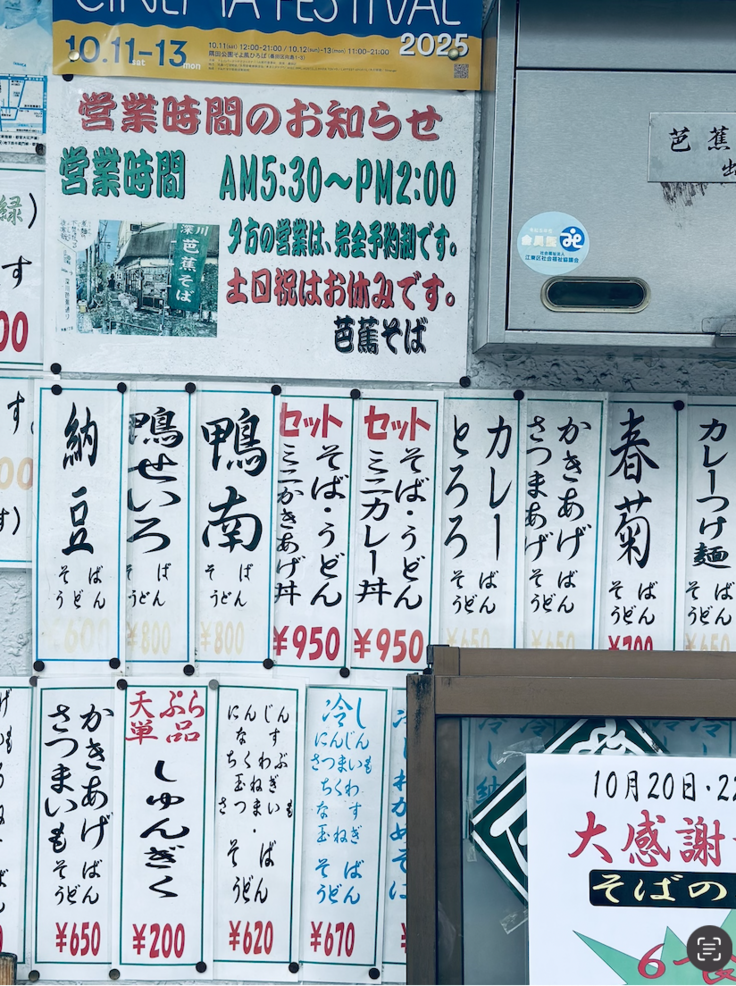 CINEMA FESTIVAL
10.11sat–13mon
2025
10.11(sat) 12:00-21:00 / 10.12(sun)-13(mon) 11:00-21:00
営業時間のお知らせ
営業時間 AM5:30〜PM2:00
夕方の営業は、完全予約制です。
土日祝はお休みです。
芭蕉そば
深川
芭蕉そば
芭蕉
会員章
江東区社会福祉協議会
緑)
す
00
納豆
そば
うどん
600
鴨せいろ
そば
うどん
¥800
鴨南
そば
うどん
¥800
セット
そば・うどん
ミニかきあげ丼
¥950
セット
そば・うどん
ミニカレー丼
¥950
カレー
とろろ
そば
うどん
¥650
かきあげ
さつまあげ
そば
うどん
¥650
春菊
そば
うどん
¥700
カレーつけ麺
そば
うどん
¥650
かきあげ
さつまいも
そば
うどん
¥650
天ぷら
単品
しゅんぎく
¥200
にんじん
なす
ちくわぶ
玉ねぎ
さつまいも
・
そば
うどん
¥620
冷し
にんじん
さつまいも
ちくわ
なす
玉ねぎ
そば
うどん
¥670
冷しわかめそば
10月20日・22
大感謝
そばの